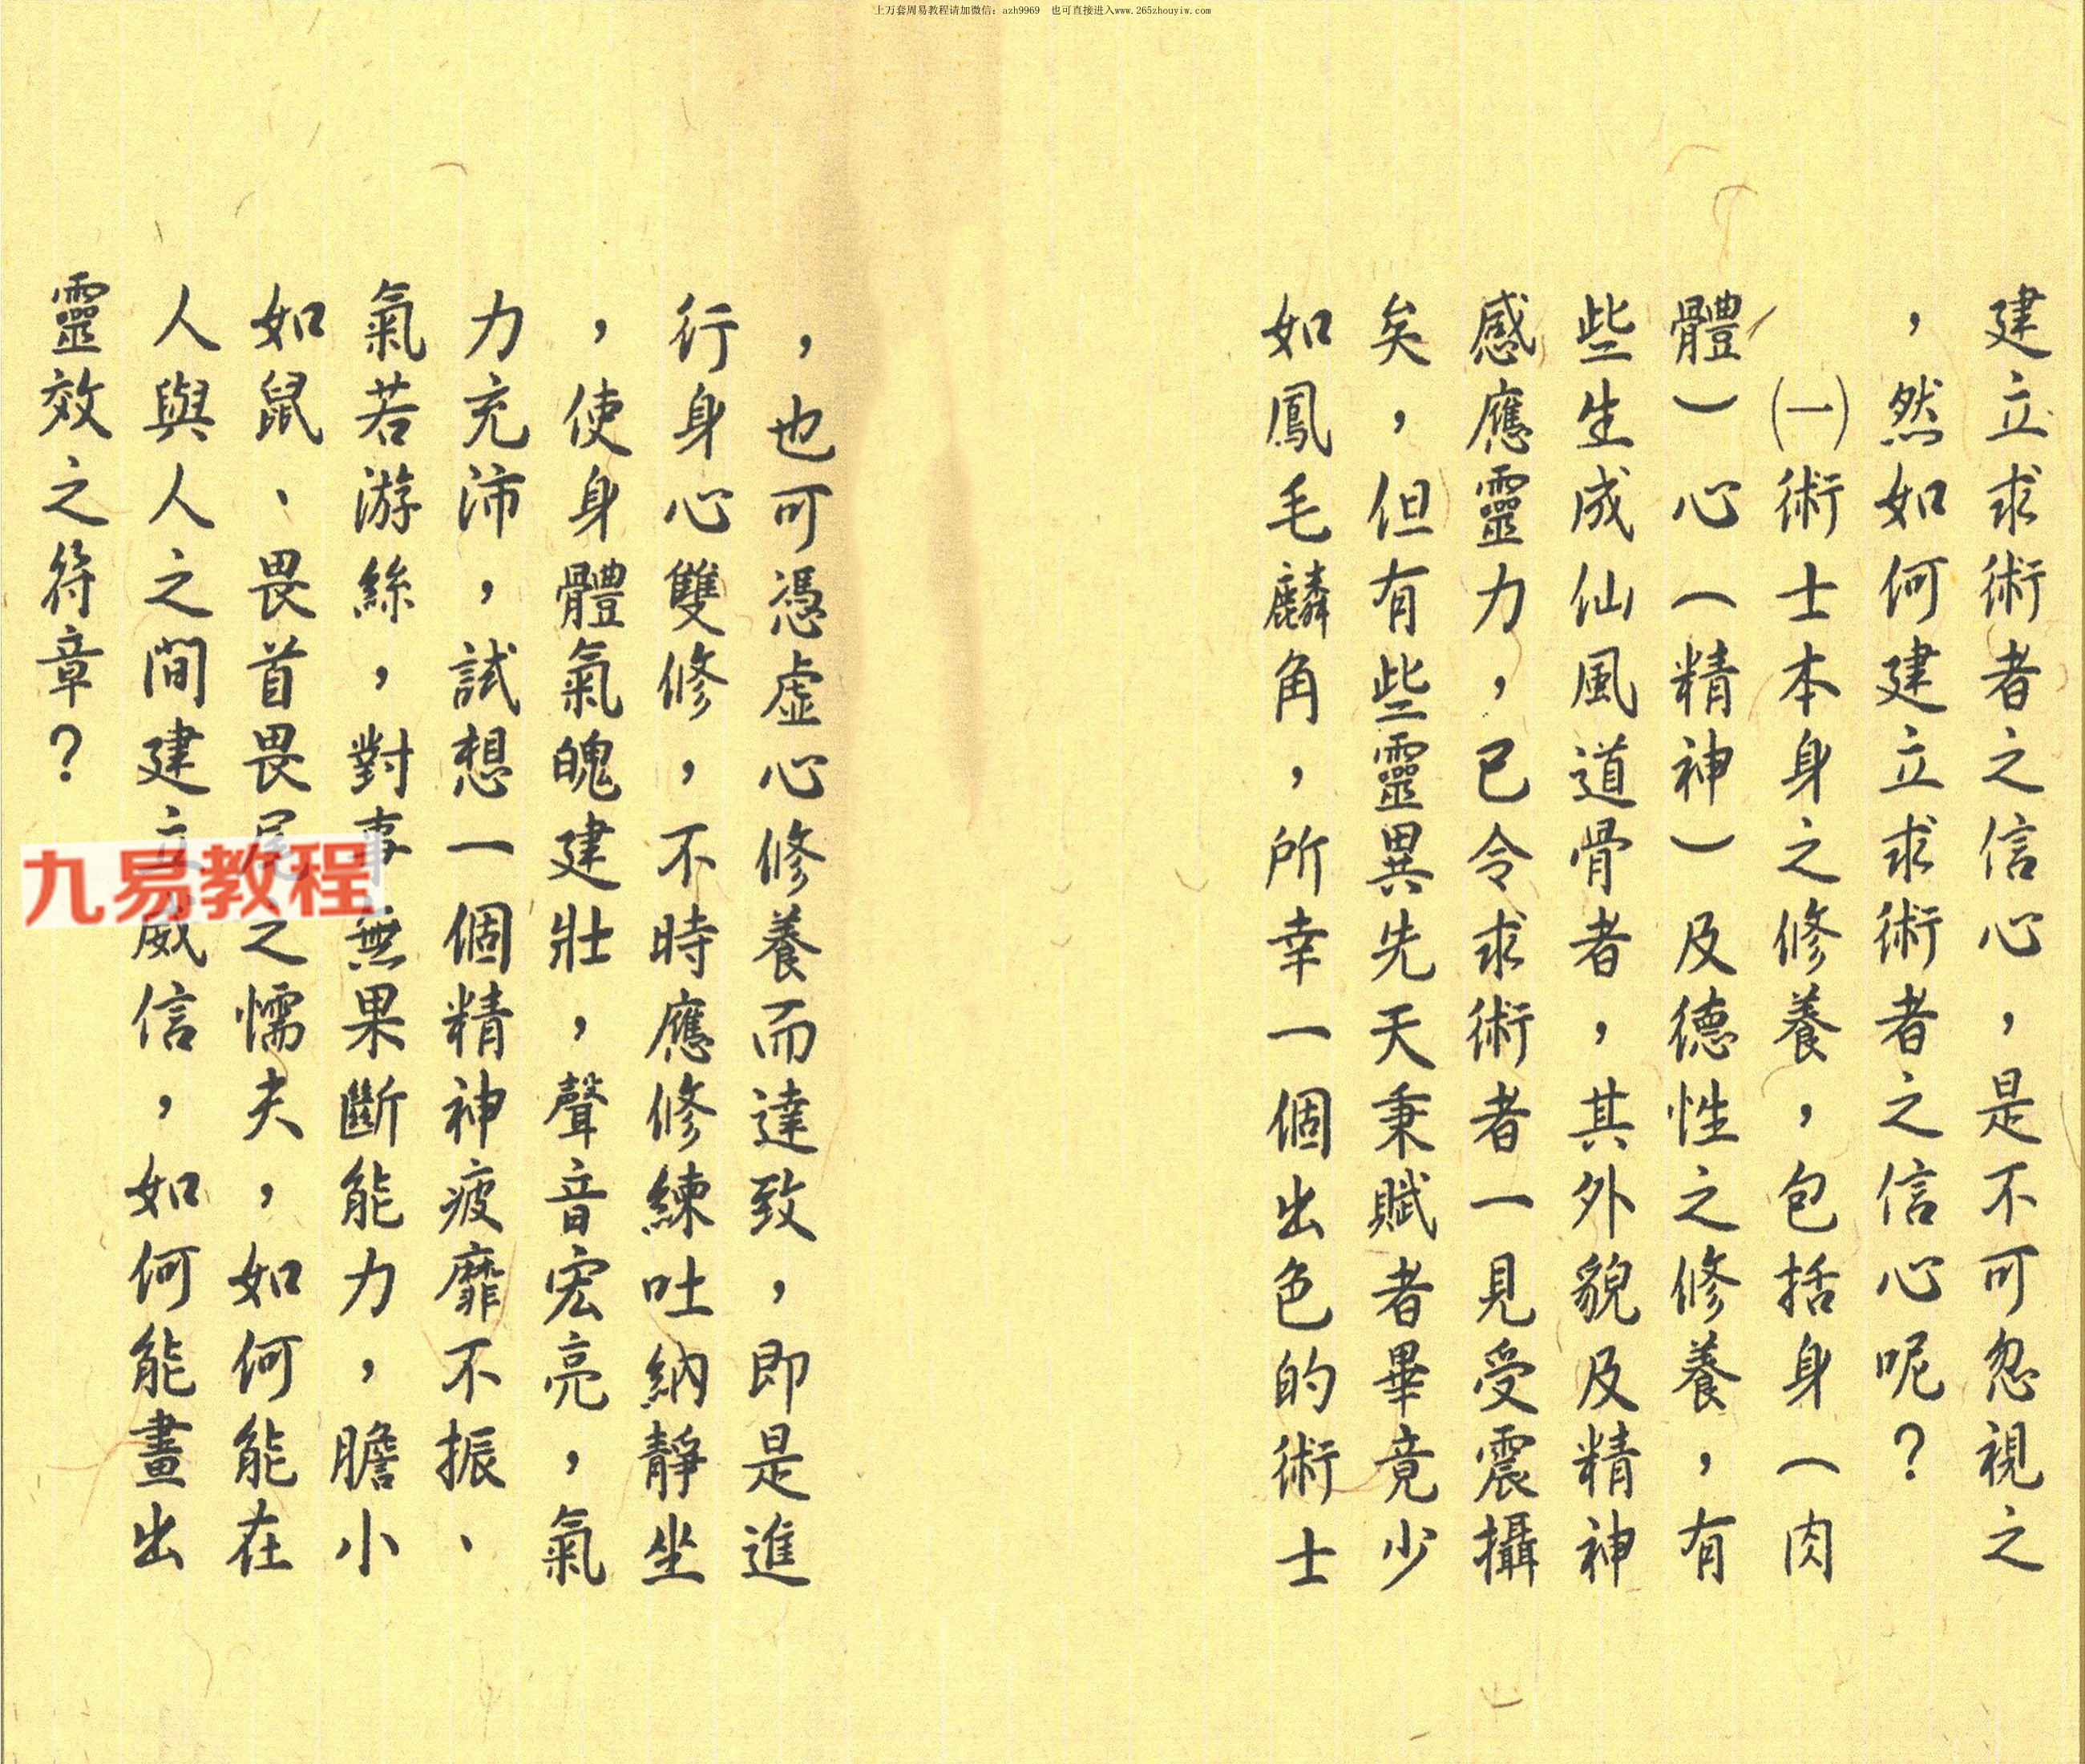 上万套周易教程请加微信：azh9969 也可直接进入www.265zhouyiw.com
建立求術者之信心，是不可忽視之
，然如何建立求術者之信心呢？
㈠術士本身之修養，包括身（肉
體）心（精神）及德性之修養，有
些生成仙風道骨者，其外貌及精神
感應靈力，已令求術者一見受震攝
矣，但有些靈異先天秉賦者畢竟少
如鳳毛麟角，所幸一個出色的術士
，也可憑虛心修養而達致，即是進
行身心雙修，不時應修練吐納靜坐
，使身體氣魄建壯，聲音宏亮，氣
力充沛，試想一個精神疲靡不振、
氣若游絲，對事無果斷能力，膽小
如鼠、畏首畏尾之懦夫，如何能在
人與人之間建立威信，如何能畫出
靈效之符章？
九易教程